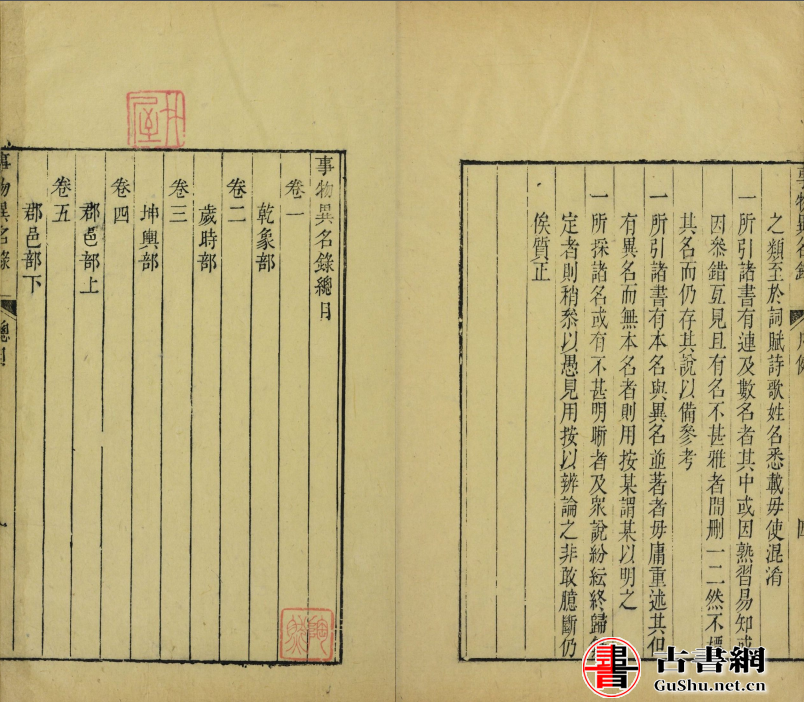 事物異名錄
之類至於詞賦詩歌姓名悉載毋使混淆
一所引諸書有連及數名者其中或因熟習易知或
因叅錯互見且有名不甚雅者間刪一二然不標
其名而仍存其說以備參考
一所引諸書有本名與異名並著者毋庸重述其但
有異名而無本名者則用按某謂某以明之
一所採諸名或有不甚明晰者及衆說紛紜終歸
定者則稍叅以愚見用按以辨論之非敢臆斷仍
俟質正
事物異名錄總目
卷一
乾象部
卷二
歲時部
卷三
坤輿部
卷四
郡邑部上
卷五
郡邑部下
事物異名錄 總目
書 古書網
GuShu.net.cn